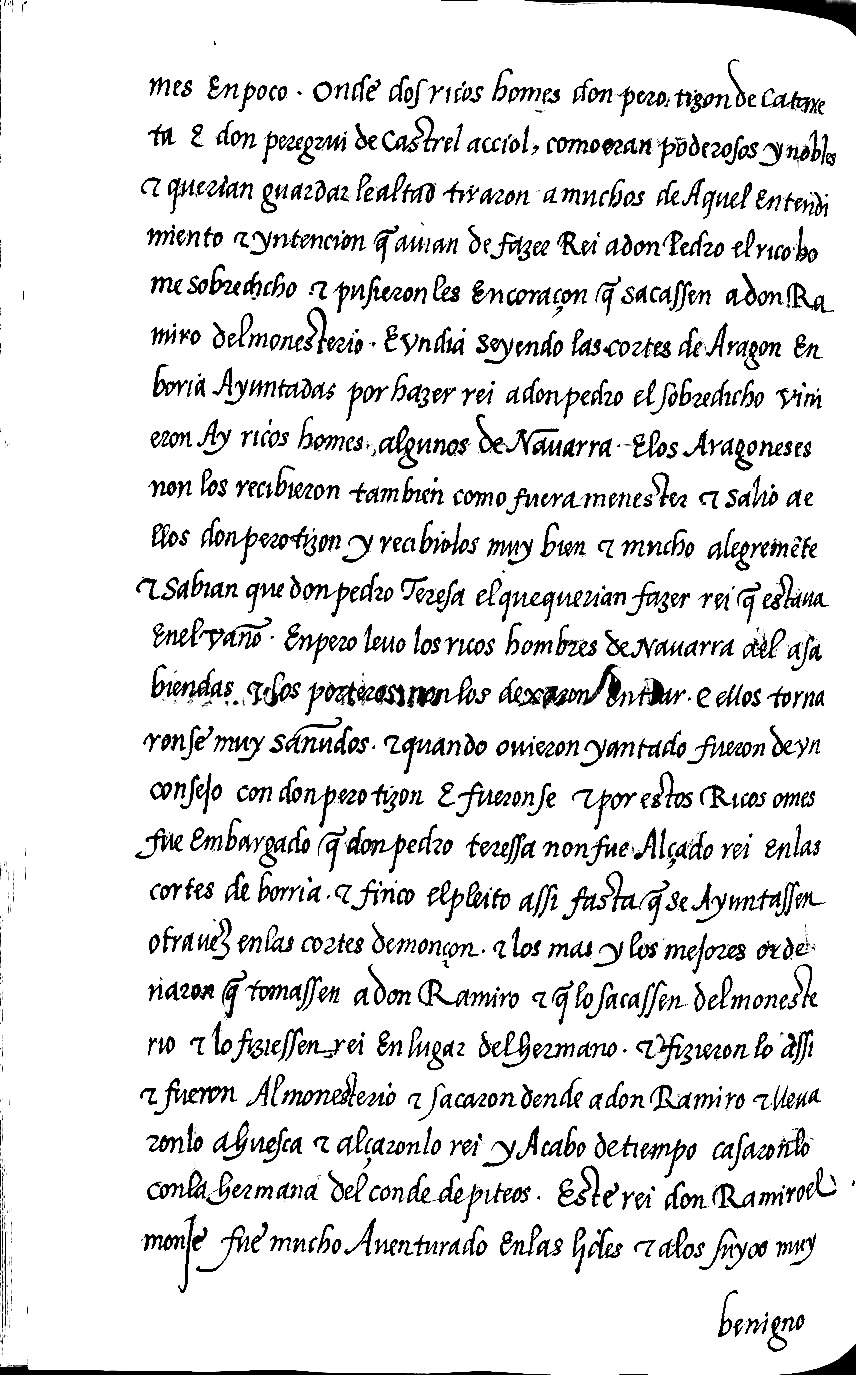 mes En poco . Onde dos ricos homes don pero. tizon de Caterxe
ta E don peregrui de Castrel acciol, como eran poderosos y nobles
⁊ querian guardar lealtad tiraron a muchos de Aquel Entendi
miento ⁊ yntencion q̃ auian de fazer Rei a don Pedro el rico ho
me sobredicho ⁊ pusieron les En coraçon q̃ sacassen a don Ra
miro del monesterio . E vn dia seyendo las cortes de Aragon En
boria Ayuntadas por hazer rei a don pedro el sobredicho vini
eron Ay ricos homes, algunos de Nauarra . E los Aragoneses
non los recibieron tambien como fuera menester ⁊ salio ae
llos don pero tizon y recibiolos muy bien ⁊ mucho alegremẽte
⁊ Sabian que don pedro Teresa el que querian fazer rei q̃ estaua
En el vaño . Enpero leuo los ricos hombres de Nauarra ael asa
biendas ⁊ los porteros non los dexaron Entrar . E ellos torna
ronse muy sañudos . ⁊ quando ouieron yantado fueron de vn
consejo con don pero tizon E fueronse ⁊ por estos Ricos omes
fue Embargado q̃ don pedro teressa non fue Alçado rei En las
cortes de borria . ⁊ finco el pleito assi fasta q̃ se Ayuntassen
otra uez en las cortes de monçon . ⁊ los mas y los mejores orde
naron q̃ tomassen a don Ramiro ⁊ q̃ lo sacassen del moneste
rio ⁊ lo fiziessen rei En lugar del hermano . ⁊ fizieron lo assi
⁊ fueron Al monesterio ⁊ sacaron dende a don Ramiro ⁊ lleua
ronlo a huesca ⁊ alçaronlo rei y Acabo de tiempo casaronlo
con la hermana del conde de piteos . Este rei don Ramiro el
monje fue mucho Auenturado En las lides ⁊ a los suyos muy
benigno